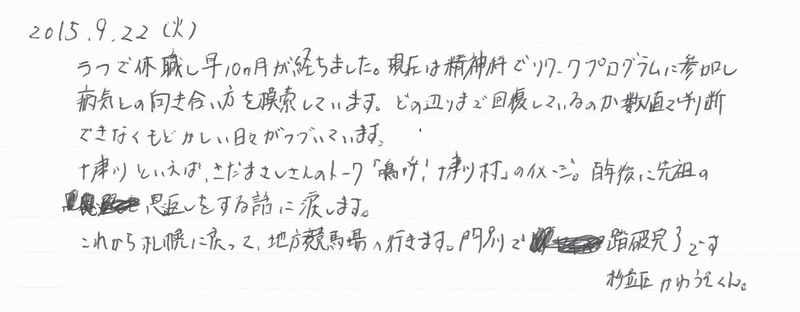 2015.9.22(火)
うつで休職し早10ヶ月が経ちました。現在は精神科でリワークプログラムに参加し
病気との向き合い方を模索しています。どの辺りまで回復しているのか数値で判断
できなくもどかしい日々がつづいています。
十津川といえば、さだまさしさんのトーク「嗚呼!十津川村」のイメージ。百年後に先祖の
恩返しをする話に涙します。
これから札幌に戻って、地方競馬場へ行きます。門別で踏破完了です
杉並区 かわうえくん。